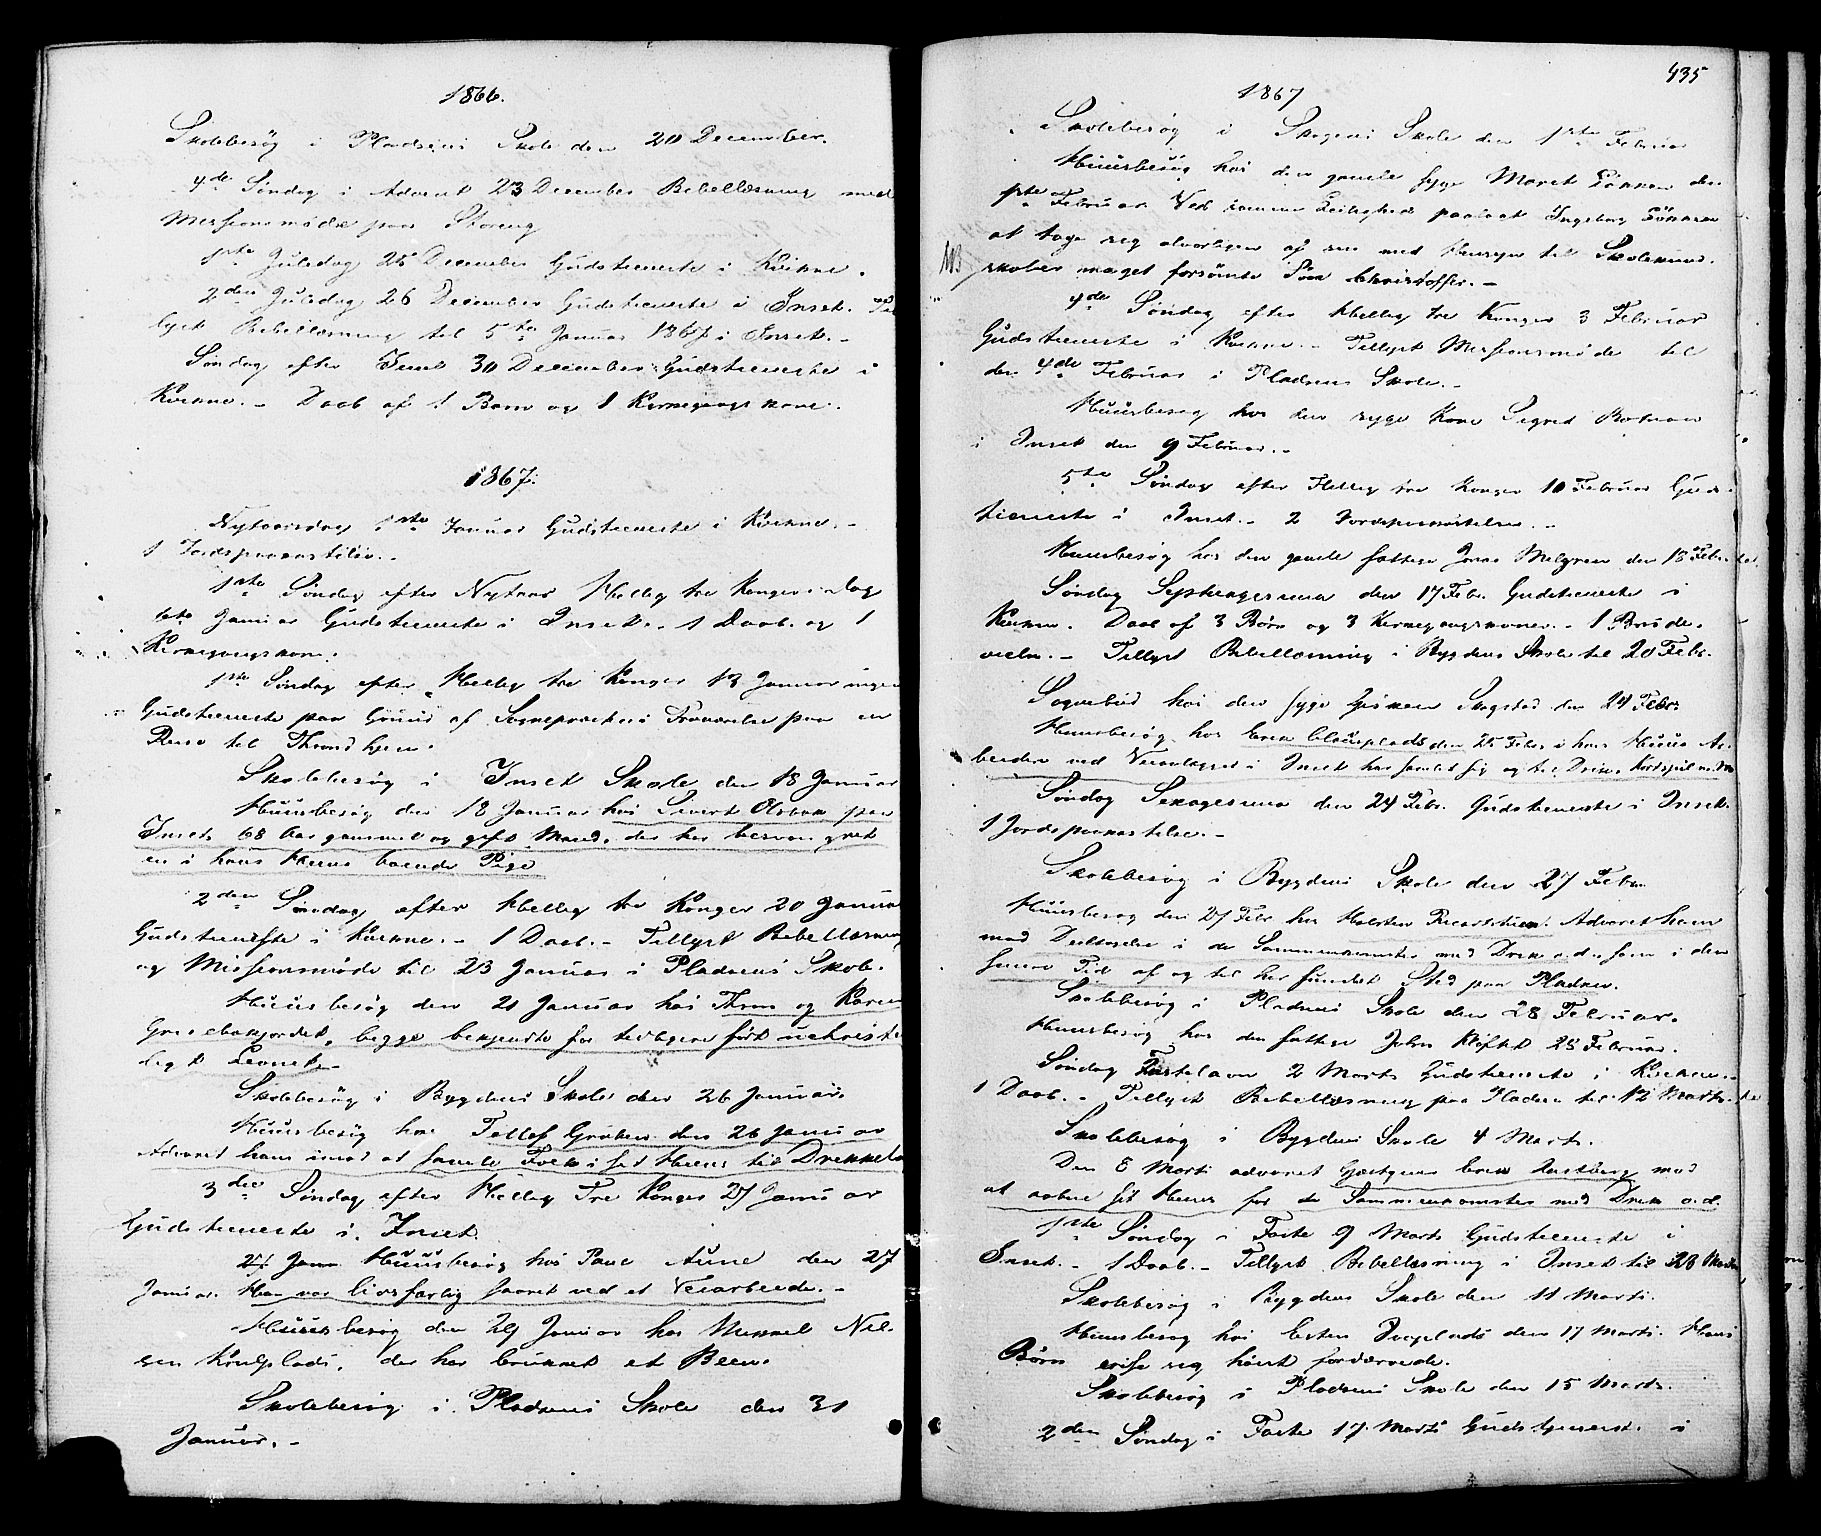 1866.
Skolebesög i Pladsens Skole den 20 December.
4de Söndag i Advent 23 December Bibellæsning med
Missionsmöde paa Storeng
1ste Juledag 25 December Gudstieneste i Kvikne.
2den Juledag 26 December Gudstieneste i Inset. Til
lyst Bibellæsning til 5te Januar 1867 i Inset.-
Söndag efter Juul 30 December Gudstieneste i
Kvikne.- Daab af 1 Barn og 1 Kirkegangskone.
1867.
Nytaarsdag 1ste Januar Gudstieneste i Kvikne.-
1 Jordspaakastelse.-
1ste Söndag efter Nytaar Hellig tre Kongers Dag
6te Januar Gudstieneste i Inset.- 1 Daab og 1
Kirkegangskone.
1ste Söndag efter Hellig tre Konger 13 Januar ingen
Gudstieneste paa Grund af Sognepræstens Fraværelse paa en
Reise til Throndhjem.
Skolebesög i Inset Skole den 18 Januar
Huusbesög den 18 Januar hos Sivert paa
Inset, 68 Aar gammel og gift Mand, der har besvangret
en i hans Huus boende Pige
2den Söndag efter Hellig tre Konger 20 Januar
Gudstieneste i Kvikne.- 1 Daab.- Tillyst Bibellæsning
og Missionsmöde til 23 Januar i Pladsens Skole.
Huusbesög den 21 Januar hos og Karen
begge bekjendte for tidligere fört uchriste
ligt Levnet.-
Skolebesög i Bygdens Skole den 26 Januar.
Huusbesög hos Tollef den 26 Januar
Advaret ham imod at samle Folk i sit Huus til Drikkela
3die Söndag efter Hellig Tre Konger 27 Januar
Gudstieneste i Inset.
27 Jann Huusbesög hos Aune den 27
Januar. Han var livsfarlig saaret ved et Veiarbeide.-
Huusbesög den 29 Januar hos Mikkel Nil-
sen der har brukket et Been.
Skolebesög i Pladsens Skole den 31
Januar.-
435
1867
Skolebesög i Skogens Skole den 1ste Februar
Huusbesög hos den gamle syge Maret den
1ste Februar. Ved samme Leilighed paalagt Ingeborg
at tage sig alvorligen af sin med Hensyn til Skolekund-
skaber meget forsömte Sön Christoffer.-
4de Söndag efter Hellig tre Konger 3 Februar
Gudstieneste i Kvikne.- Tillyst Missionsmöde til
den 4de Februar i Pladsens Skole.-
Huusbesög hos den syge Kone Sigrid
i Inset den 9 Februar.-
5te Söndag efter Hellig tre Konger 10 Februar Guds-
tieneste i Inset.- 2 Jordspaakastelser.-
Huusbesög hos den gamle fattige Jonas den Febr
Söndag Septuagesima den 17 Febr. Gudstieneste i
Kvikne. Daab af 3 Börn og 3 Kirkegangskoner.- 1 Brude-
vielse.- Tillyst Bibellæsning i Bygdens Skole til 20 Febr.
Sognebud hos den syge Skogstad den 24 Febr.
Huusbesög hos den 25 Febr i hvis Huus Ar-
beidere ved Veianlægget i Inset har samlet sig og til Drik, Kortspil
Söndag Sexagesima den 24 Febr. Gudstieneste i Inset.
1 Jordspaakastelse.-
Skolebesög i Bygdens Skole den 27 Febr.
Huusbesög den 27 Febr hos Advaret ham
mod Deeltagelse i de Sammenkomster med Drik o.d. som i den
senere Tid af og til har fundet Sted paa Pladsen.
Skolebesög i Pladsens Skole den 28 Februar.
Huusbesög hos den fattige John 28 Februar.
Söndag Fastelavn 2 Marts Gudstieneste i Kvikne.-
1 Daab.- Tillyst Bibellæsning paa Pladsen til 12 Marts.
Skolebesög i Bygdens Skole 4 Marts.
Den 8 Marts advaret Gjæstgiver mod
at aabne sit Huus for de Sammenkomster med Drik o.d.
1ste Söndag i Faste 9 Marts Gudstieneste i
Inset.- 1 Daab.- Tillyst Bibellæsning i Inset til 20 Marts
Skolebesög i Bygdens Skole den 11 Marts.
Huusbesög hos den 17 Marts. Hans
Börn vise sig höist fordærvede.
Skolebesög i Pladsens Skole den 15 Marts.
2den Söndag i Faste 17 Marts Gudstjeneste i